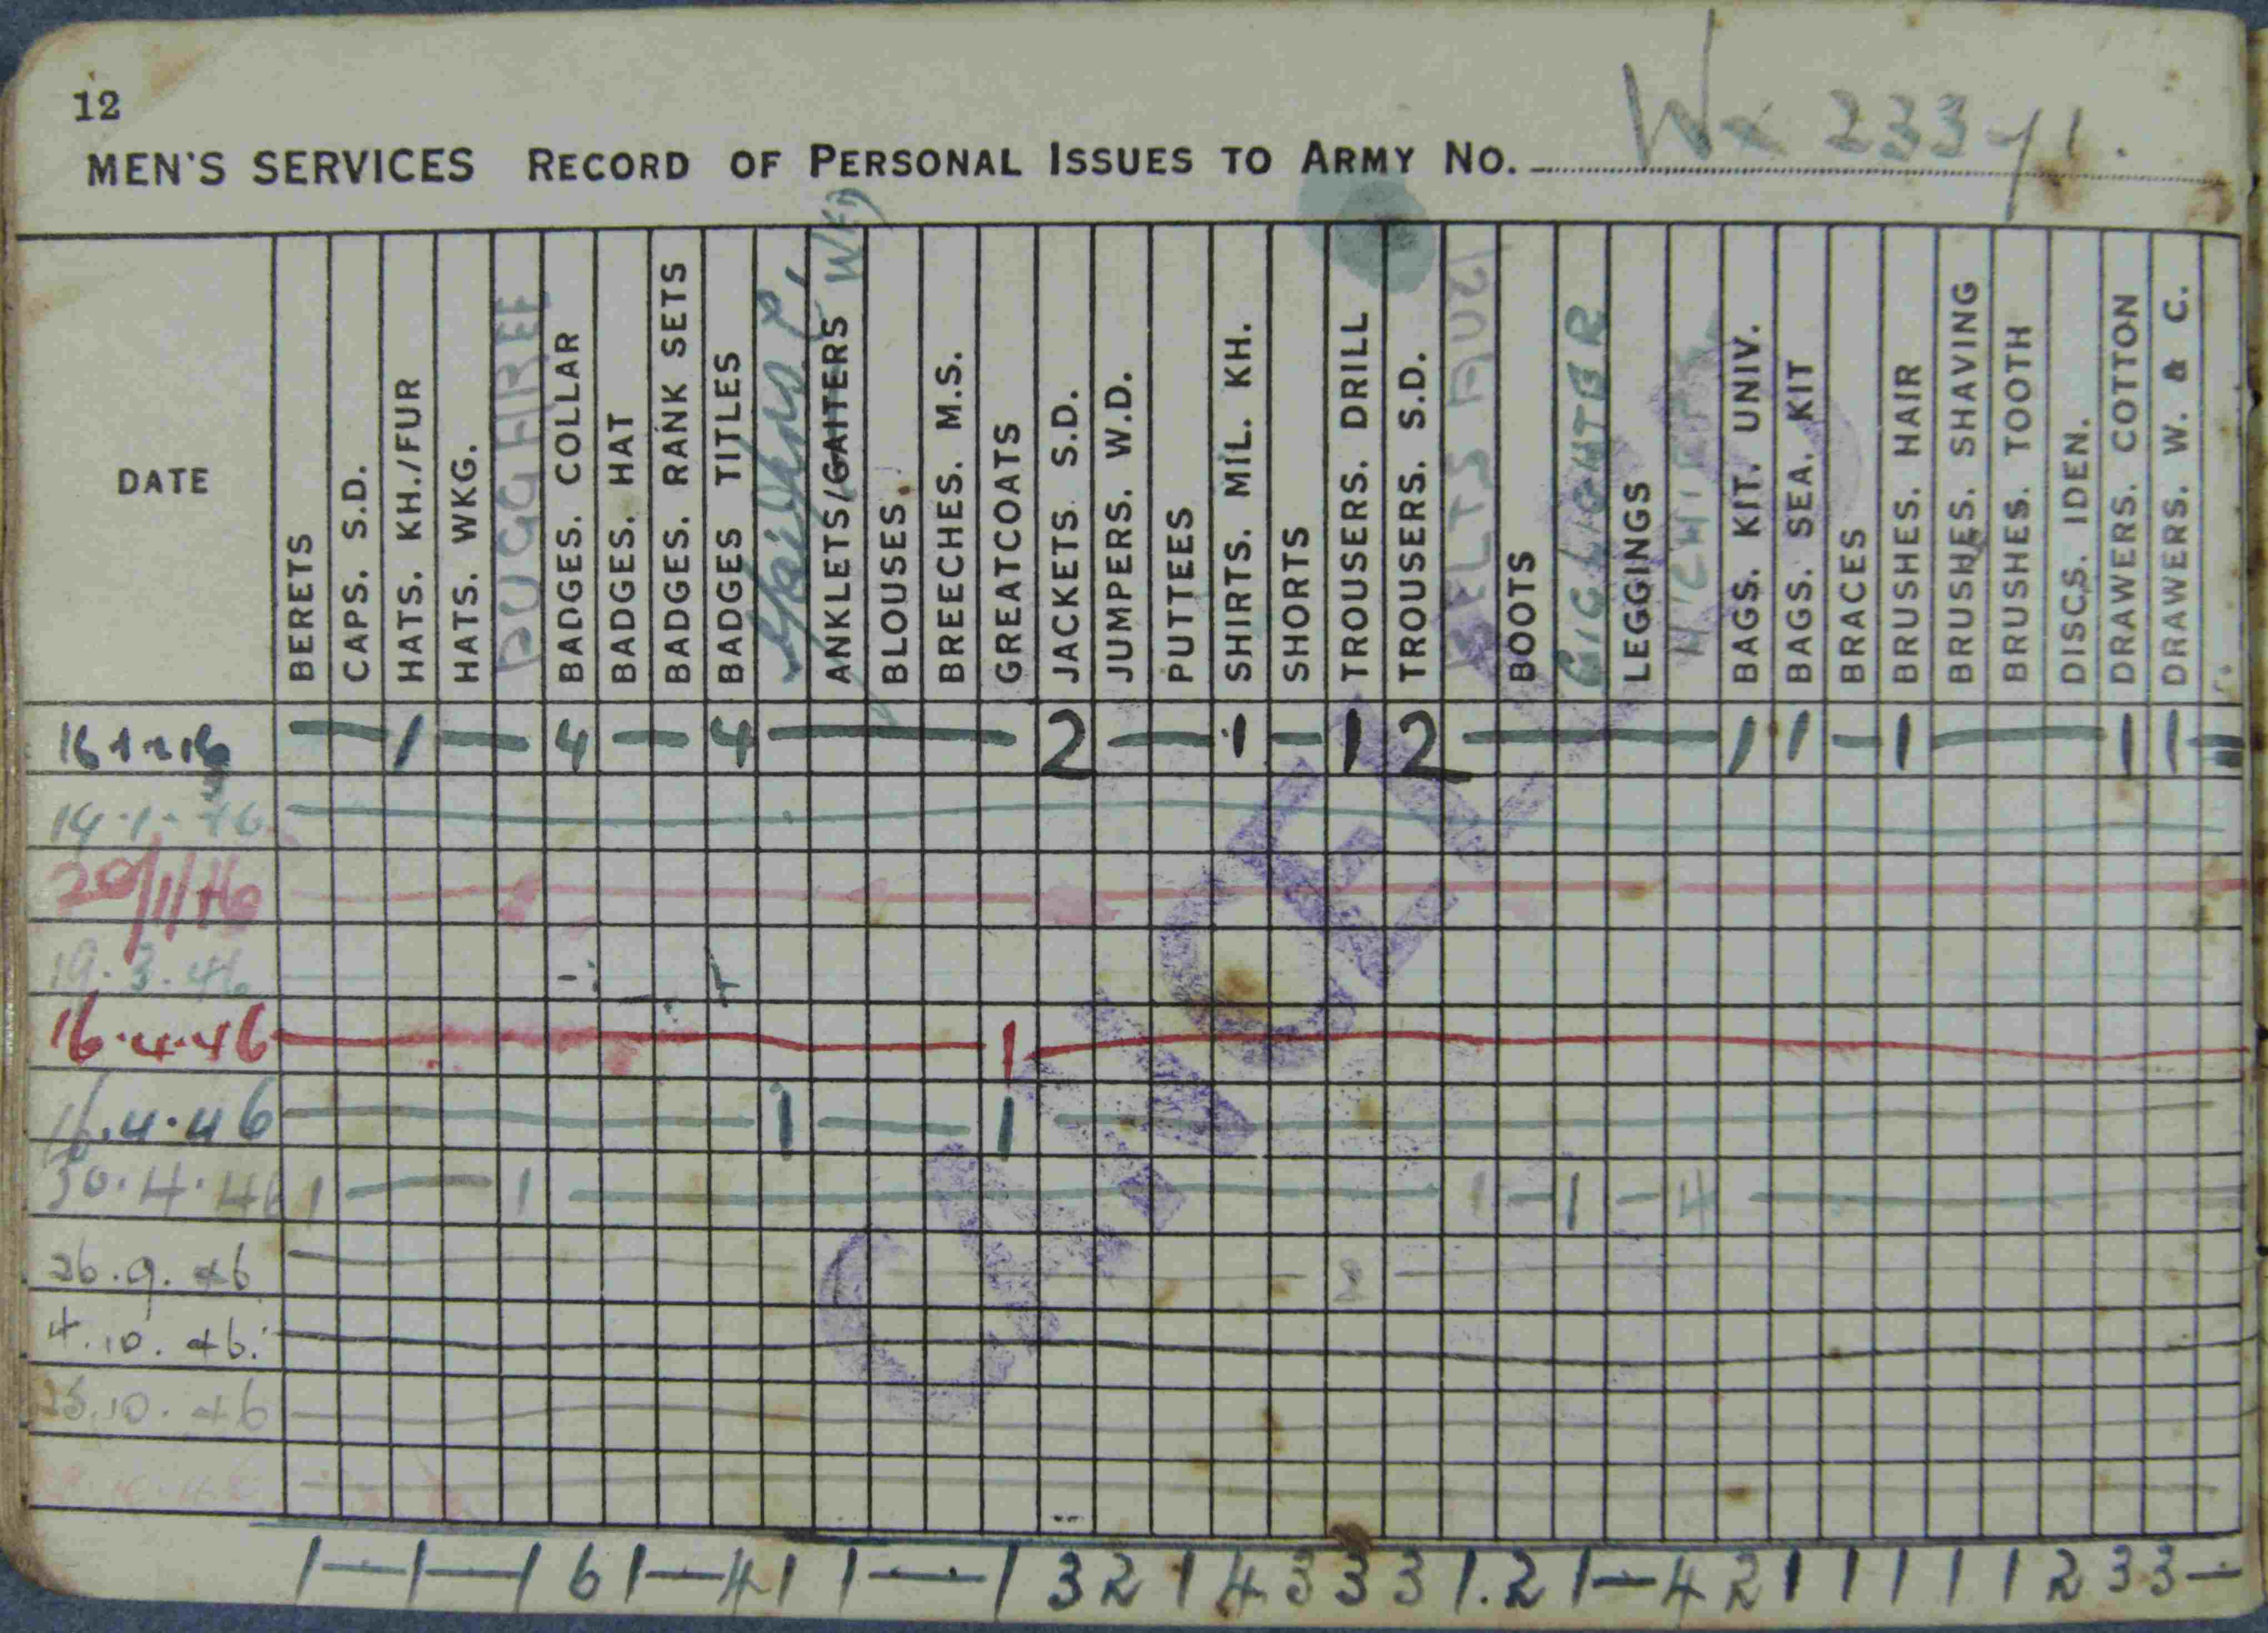 12
MEN'S SERVICES RECORD OF PERSONAL ISSUES TO ARMY No. Wx 23371.
DATE
BERETS
CAPS. S.D.
HATS. KH./FUR
HATS. WKG.
PUGGAREE
BADGES. COLLAR
BADGES. HAT
BADGES. RANK SETS
BADGES TITLES
ANKLETS/GAITERS
BLOUSES.
BREECHES. M.S.
GREATCOATS
JACKETS. S.D.
JUMPERS. W.D.
PUTTEES
SHIRTS. MIL. KH.
SHORTS
TROUSERS. DRILL
TROUSERS. S.D.
BELTS
BOOTS
LEGGINGS
BAGS. KIT. UNIV.
BAGS. SEA. KIT
BRACES
BRUSHES. HAIR
BRUSHES. SHAVING
BRUSHES. TOOTH
DISCS. IDEN.
DRAWERS. COTTON
DRAWERS. W. & C.
— 1 — 4 — 4 — 2 — 1 — 1 2 — 1 1 — 1 — 1 1 —
20/1/46
19.3.46
16.4.46 — 1 —
16.4.46 — 1 — 1 —
30.4.46 1 — 1 — 1 — 1 — 4 —
26.9.46 — 2 —
4.10.46. —
10.46 —
1 — 1 — 1 6 1 — 4 1 1 — 1 3 2 1 4 3 3 3 1. 2 1 — 4 2 1 1 1 1 1 2 3 3 —